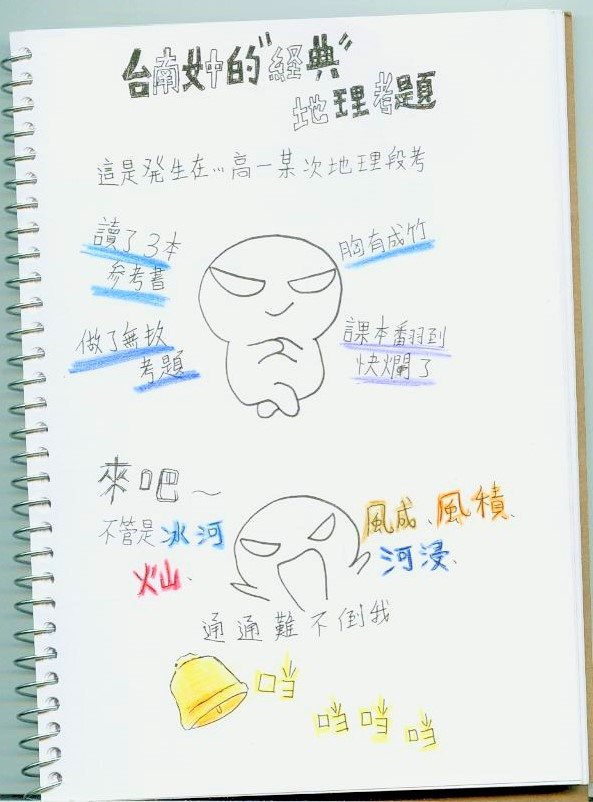 台南女中的"經典"
地理考題
這是發生在…高一某次地理段考
讀了3本
參考書
胸有成竹
做了無敉
考題
課本翻到
快爛了
來吧～
不管是冰河
火山、
風成、風積、
河浸、
通通難不倒我
噹
噹噹噹